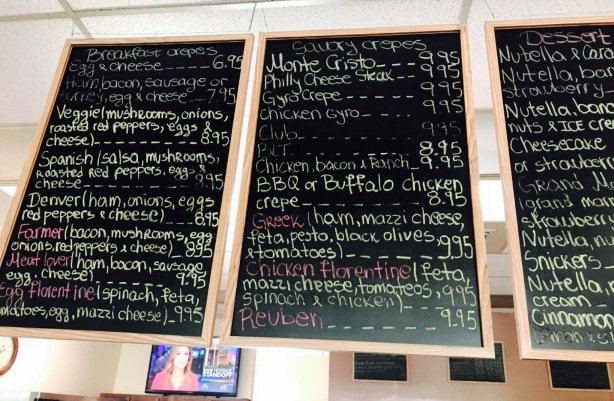 Breakfast crepes
Egg & cheese - - - - 6.95
Ham, bacon, sausage or
turkey, egg & cheese - - - 7.95
Veggie (mushrooms, onions,
roasted red peppers, eggs &
cheese) - - - - - - - 8.95
Spanish (salsa, mushrooms,
Roasted Red peppers, eggs &
cheese - - - - - - - 8.95
Denver (ham, onions, eggs
red peppers & cheese) - - - 8.95
Farmer (bacon, mushrooms, egg
onions, red peppers & cheese) - 8.95
Meat lover (ham, bacon, sausage
egg, cheese) - - - - - 9.95
Egg florentine (spinach, feta,
matoes, egg, mazzi cheese) - 9.95
Savory crepes
Monte Cristo - - - - 9.95
Philly Cheese Steak - - - 9.95
Gyro Crepe - - - - - 9.95
Chicken Gyro - - - - 9.95
Club - - - - - - - 9.95
BLT - - - - - - - 8.95
Chicken, bacon & Ranch - 9.95
BBQ or Buffalo chicken
crepe - - - - - - - 8.95
Greek (ham, mazzi cheese,
feta, pesto, black olives,
& tomatoes) - - - - - 9.95
Chicken florentine (feta,
mazzi cheese, tomatoes,
spinach & chicken) - - - 9.95
Reuben - - - - - - - 9.95
Dessert
Nutella &
Nutella,
strawberry
Nutella,
nuts & ICE cre
Cheesecake
or
Grand
strawberri
Nutella, nu
Snickers
Nutella,
cream
Cinnamon
STANDOFF